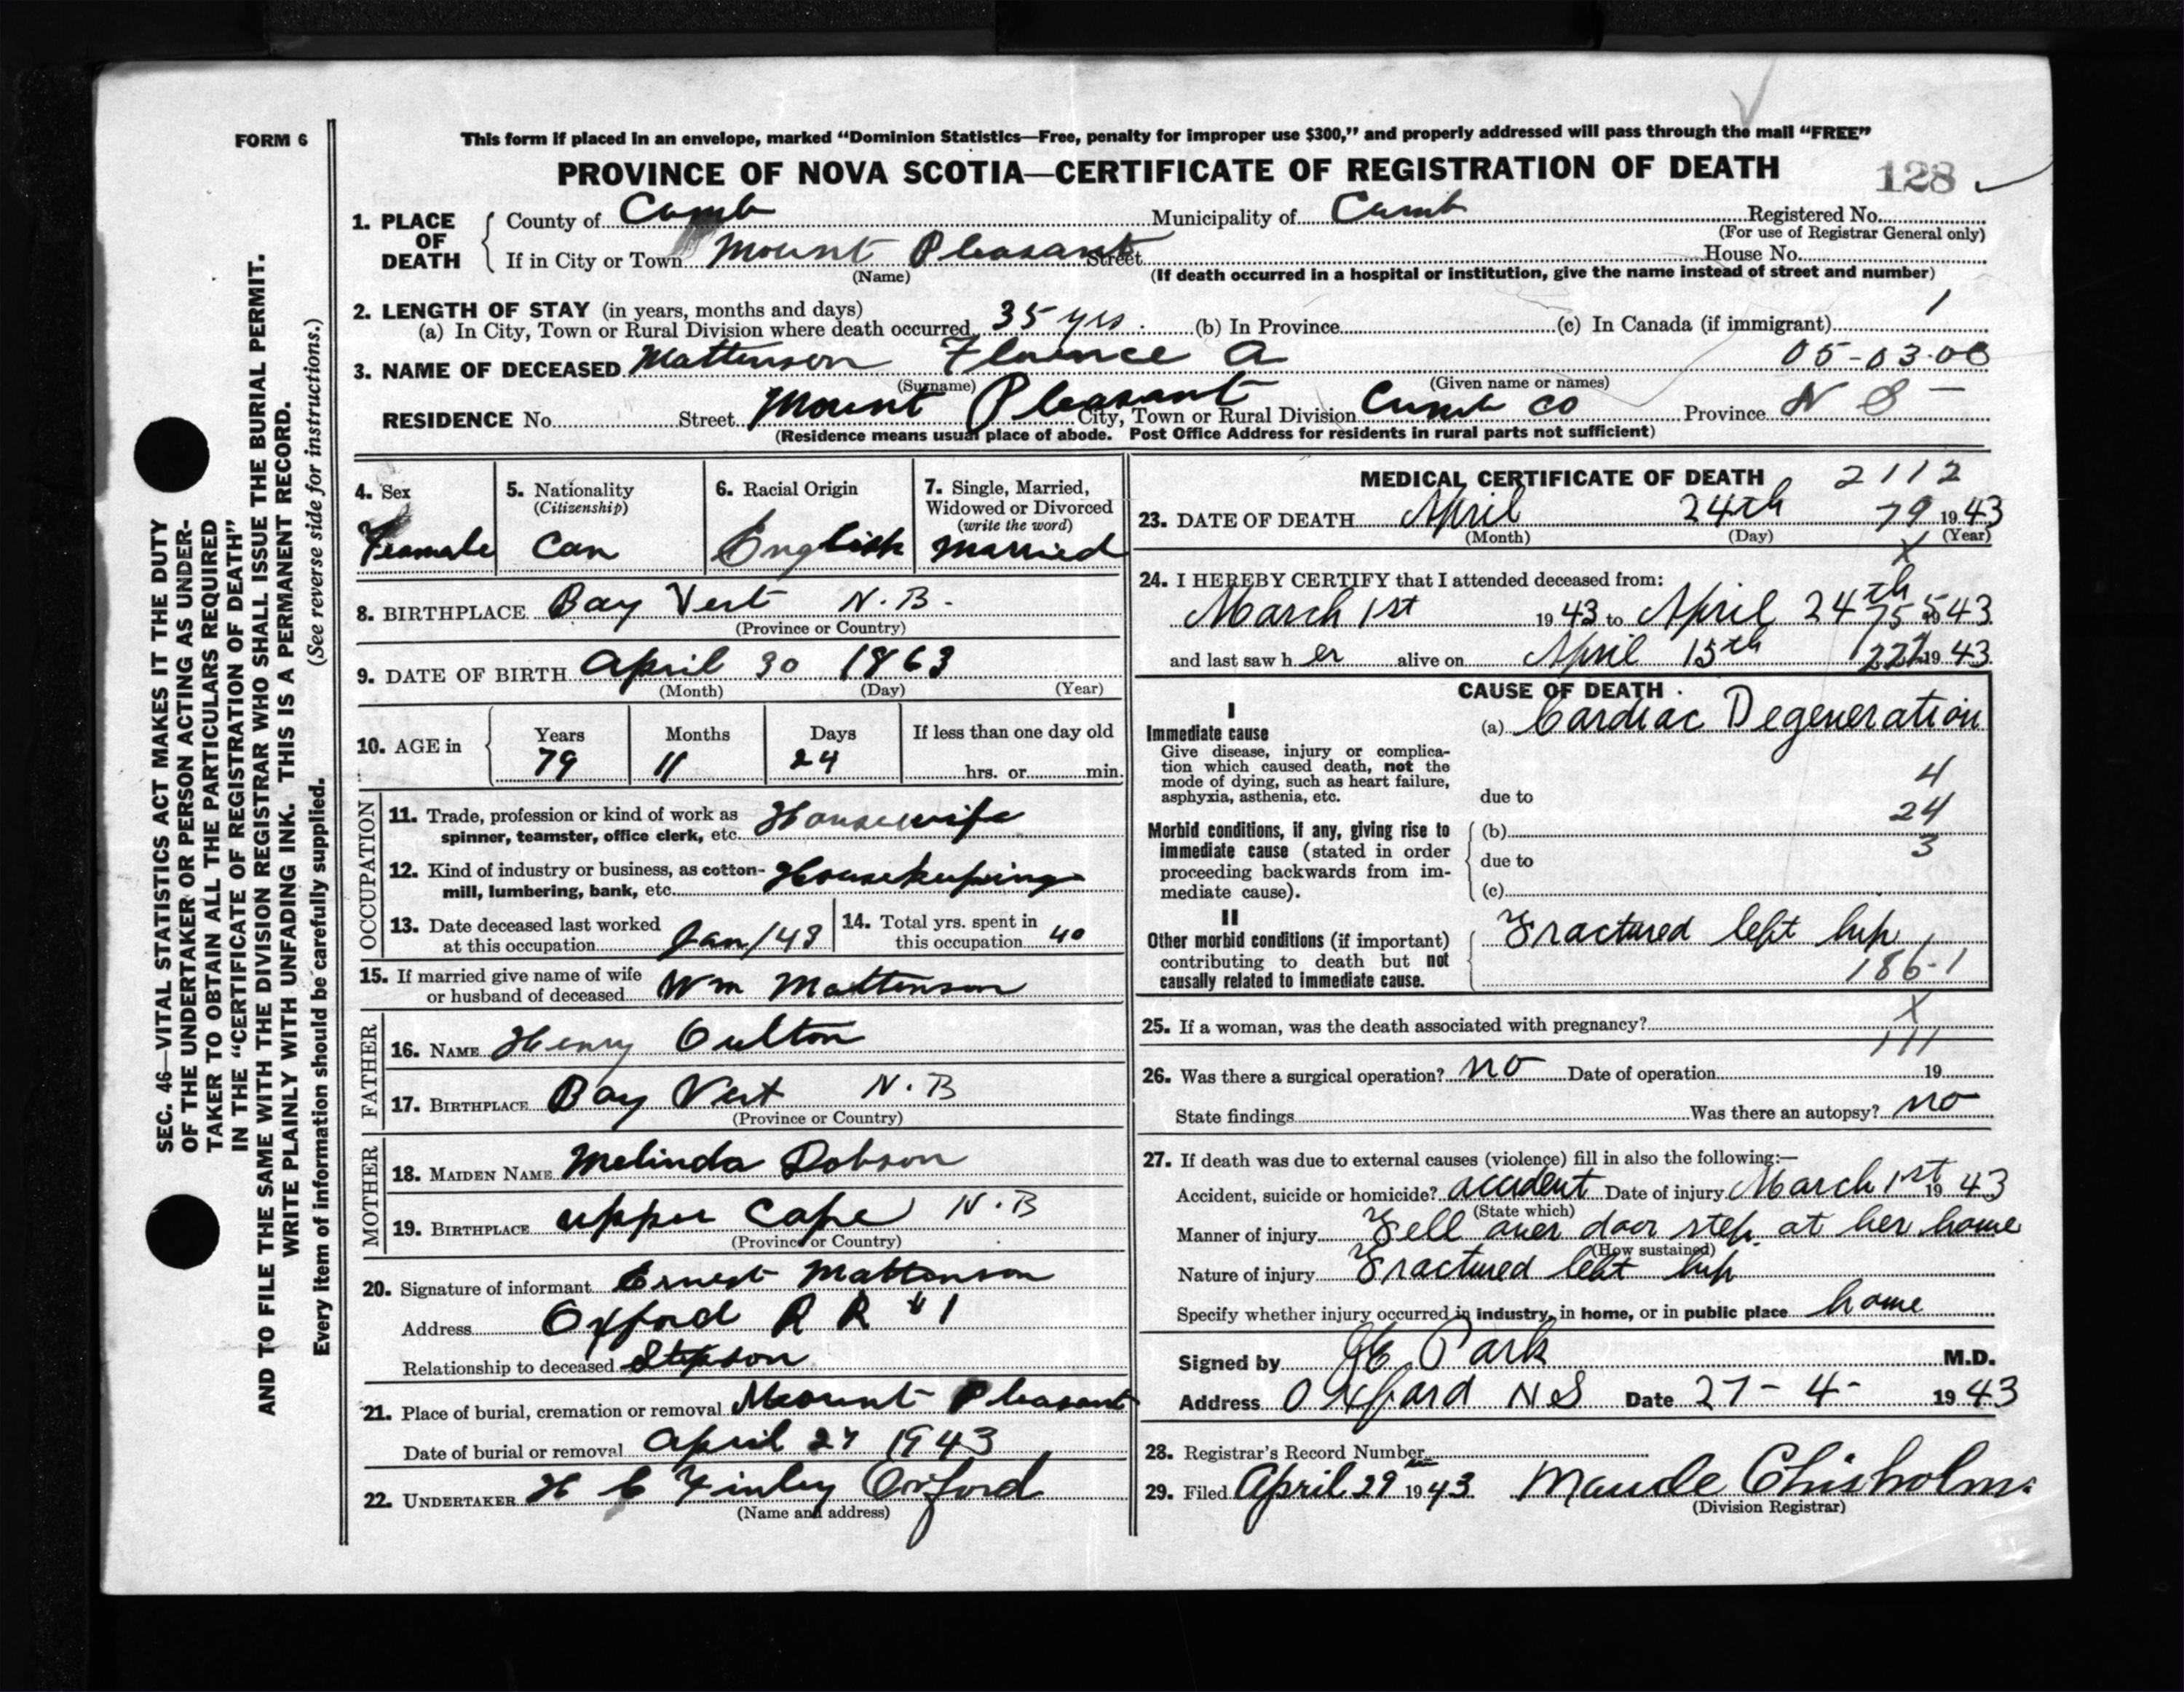 FORM 6
This form if placed in an envelope, marked “Dominion Statistics—Free, penalty for improper use $300,” and properly addressed will pass through the mail “FREE”
PROVINCE OF NOVA SCOTIA—CERTIFICATE OF REGISTRATION OF DEATH
128
1. PLACE OF DEATH
County of Cumb Municipality of Cumb Registered No.
(For use of Registrar General only)
If in City or Town Mount Pleasant Street House No.
(Name) (If death occurred in a hospital or institution, give the name instead of street and number)
2. LENGTH OF STAY (in years, months and days)
(a) In City, Town or Rural Division where death occurred 35 yrs. (b) In Province (c) In Canada (if immigrant) 1
3. NAME OF DECEASED Mattinson Florence A 05-03-08
(Surname) (Given name or names)
RESIDENCE No. Street Mount Pleasant City, Town or Rural Division Cumb Co Province N S
(Residence means usual place of abode. Post Office Address for residents in rural parts not sufficient)
4. Sex
Feamale
5. Nationality
(Citizenship)
Can
6. Racial Origin
English
7. Single, Married,
Widowed or Divorced
(write the word)
Married
8. BIRTHPLACE Bay Vert N.B.
(Province or Country)
9. DATE OF BIRTH April 30 1863
(Month) (Day) (Year)
10. AGE in
Years Months Days If less than one day old
79 11 24 hrs. or min.
OCCUPATION
11. Trade, profession or kind of work as
spinner, teamster, office clerk, etc. Housewife
12. Kind of industry or business, as cotton-
mill, lumbering, bank, etc. Housekeeping
13. Date deceased last worked
at this occupation Jan/43
14. Total yrs. spent in
this occupation 40
15. If married give name of wife
or husband of deceased Wm Mattinson
FATHER
16. NAME Henry Oulton
17. BIRTHPLACE Bay Vert N.B
(Province or Country)
MOTHER
18. MAIDEN NAME Melinda Dobson
19. BIRTHPLACE Upper Cape N.B
(Province or Country)
20. Signature of informant Ernest Mattinson
Address Oxford R R #1
Relationship to deceased Stepson
21. Place of burial, cremation or removal Mount Pleasant
Date of burial or removal April 27 1943
22. UNDERTAKER H C Finley Oxford
(Name and address)
MEDICAL CERTIFICATE OF DEATH 2112
23. DATE OF DEATH April 24th 79 1943
(Month) (Day) (Year)
X
24. I HEREBY CERTIFY that I attended deceased from:
March 1st 1943 to April 24th 1943
and last saw her alive on April 15th 1943
CAUSE OF DEATH
I
Immediate cause
Give disease, injury or complica-
tion which caused death, not the
mode of dying, such as heart failure,
asphyxia, asthenia, etc.
(a) Cardiac Degeneration
4
due to
24
Morbid conditions, if any, giving rise to
immediate cause (stated in order
proceeding backwards from im-
mediate cause).
(b)
3
due to
(c)
II
Other morbid conditions (if important)
contributing to death but not
causally related to immediate cause.
Fractured left hip
186-1
25. If a woman, was the death associated with pregnancy? X
111
26. Was there a surgical operation? no Date of operation 19
State findings Was there an autopsy? no
27. If death was due to external causes (violence) fill in also the following:—
Accident, suicide or homicide? accident Date of injury March 1st 1943
(State which)
Manner of injury Fell over door step at her home
(How sustained)
Nature of injury Fractured left hip
Specify whether injury occurred in industry, in home, or in public place home
Signed by Park M.D.
Address Oxford N S Date 27-4- 1943
28. Registrar's Record Number
29. Filed April 29 1943 Maude Chisholm
(Division Registrar)
SEC. 46—VITAL STATISTICS ACT MAKES IT THE DUTY
OF THE UNDERTAKER OR PERSON ACTING AS UNDER-
TAKER TO OBTAIN ALL THE PARTICULARS REQUIRED
IN THE “CERTIFICATE OF REGISTRATION OF DEATH”
AND TO FILE THE SAME WITH THE DIVISION REGISTRAR WHO SHALL ISSUE THE BURIAL PERMIT.
WRITE PLAINLY WITH UNFADING INK. THIS IS A PERMANENT RECORD.
Every item of information should be carefully supplied. (See reverse side for instructions.)